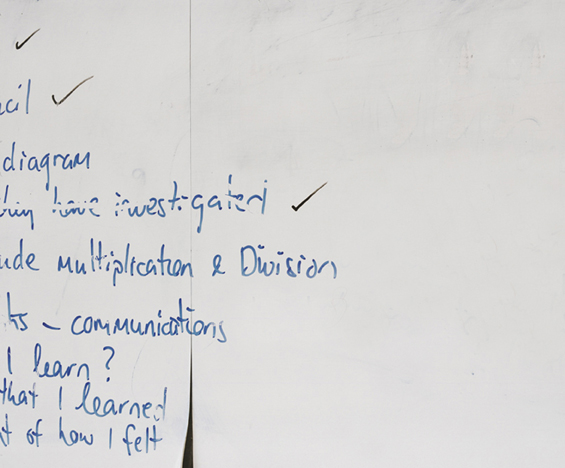 ✓
cil ✓
diagram
have investigated ✓
ude multiplication & Division
ts - communications
I learn?
that I learned
t of how I felt